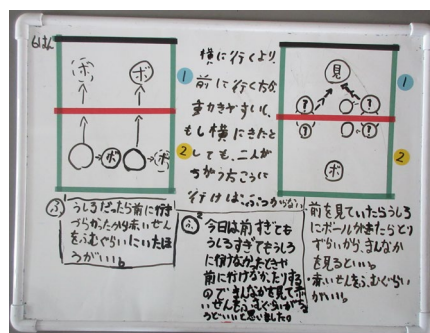 6はん
ボ
ボ
1
2
ボ
ボ
横に行くより、
前に行く方が
動きやすいし、
もし横にきたと
しても、二人が
ちがう方こうに
行けば、ぶつからない。
見
1
2
ボ
ふ
うしろだったら前に行け
づらかったから赤いせん
をふむぐらいにいたほ
うがいい。
ふ2
今日は前すぎても
うしろすぎてもうしろ
に行けなかったときや
前に行けなかったりする
のでまんなかを見て赤
いせんをふむぐらいがちょ
うどいいと思いました。
・前を見ていたらうしろ
にボールがきたらとり
ずらいから、まんなか
を見るといい。
・赤いせんをふむぐらい
がいい。